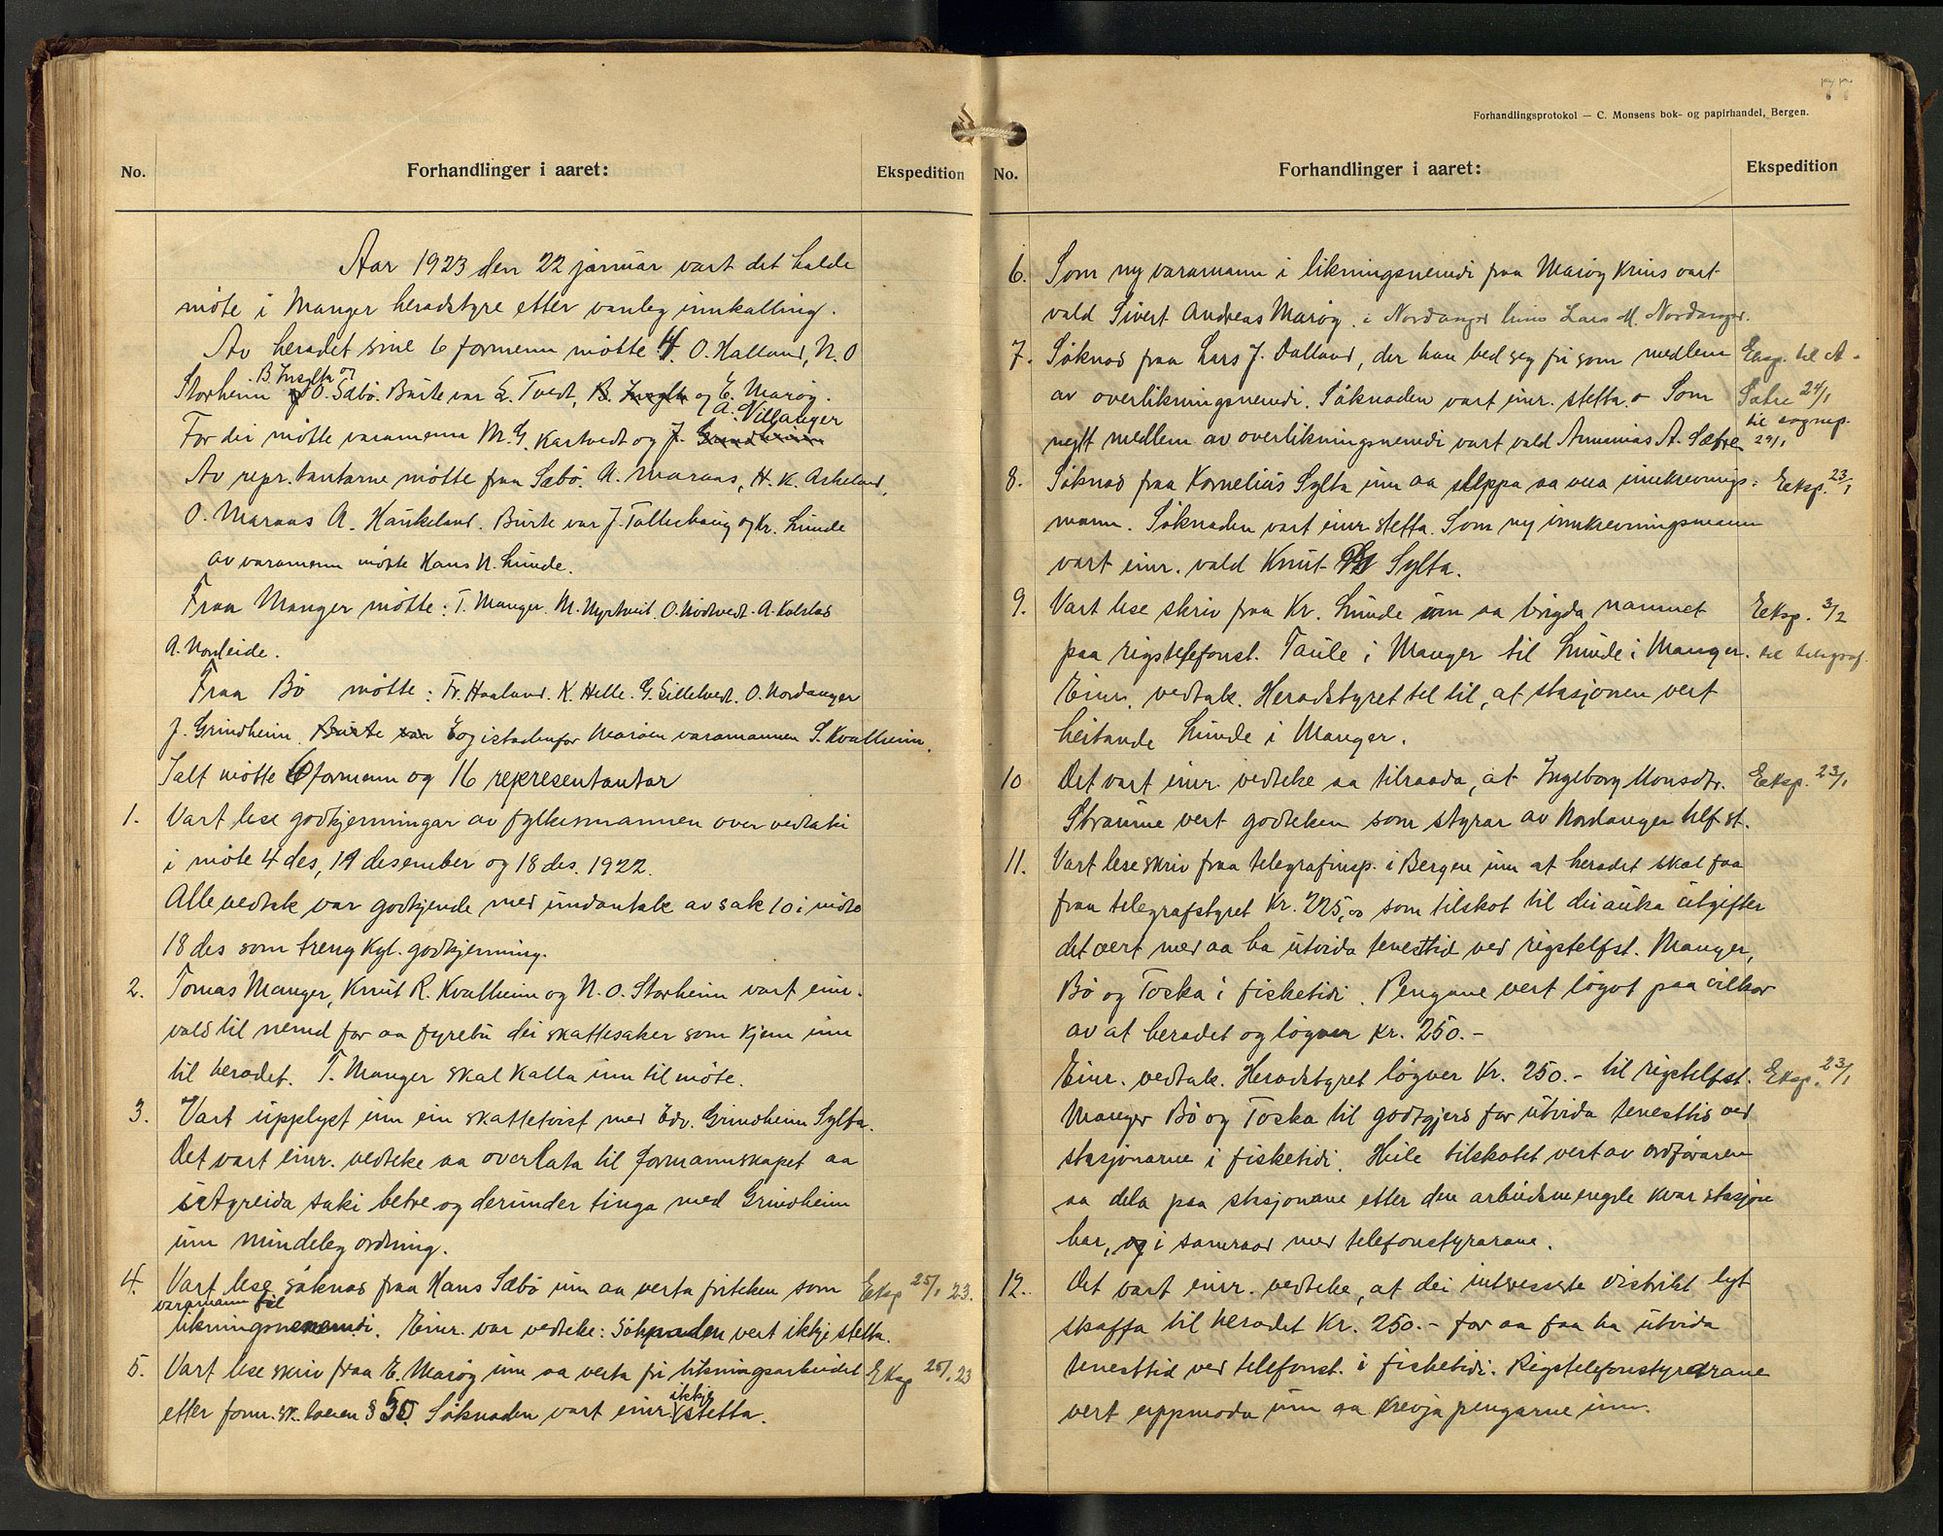 No. Forhandlinger i aaret: Ekspedition
Aar 1923 den 22 januar vart det halde
møte i Manger heradstyre etter vanleg innkalling.
Av heradet sine 6 formenn møtte 4. O. Halland, N. O
B. Insylta og
Storheim O. Sæbø. Burte var L. Tvedt, B. Insylta og E. Marøy.
A. Villanger
For dei møtte varamenn M. G. Kartvedt og J. Grindheim
Av repr.tantarne møtte fraa Sæbø. A. Maraas, H. K. Askeland,
O. Maraas A. Haukeland. Burte var J. Tallerhaug og Kr. Lunde
av varamenn møtte Hans N. Lunde.
Fraa Manger møtte: T. Manger. M. Myrtveit. O. Mødtvedt. A. Kolstad
A. Nordeide.
Fraa Bø møtte: Fr. Haaland. K. Helle. G. Gilletvedt. O. Nordanger
J. Grindheim. Burte var E og istadenfor Marøen varamannen S. Kvalheim.
Ialt møtte 6 formenn og 16 representantar
1. Vart lese godkjenningar av fylkesmannen over vedtaki
i møte 4 des, 14 desember og 18 des. 1922.
Alle vedtak var godkjende med undantak av sak 10 i møte
18 des som treng Kgl. godkjenning.
2. Tomas Manger, Knut R. Kvalheim og N. O. Storheim vart einr.
vald til nemnd for aa fyrebu dei skattesaker som kjem inn
til heradet. T. Manger skal kalla inn til møte.
3. Vart upplyst um ein skattetvist med Edv. Grindheim Sylta.
Det vart einr. vedteke aa overlata til formannskapet aa
utgreida saki betre og derunder tinga med Grindheim
um mindeleg ordning.
4. Vart lese søknad fraa Hans Sæbø um aa verta friteken som Eksp 25/1 23.
varamann til
likningsnemndi. Einr. var vedteke: Søknaden vert ikkje stetta.
5. Vart lese skriv fraa E. Marøy um aa verta fri likningsarbeidet Eksp 25/1 23
ikkje
etter form. sk. loven § 50 Søknaden vart einr. stetta.
77
Forhandlingsprotokol — C. Monsens bok- og papirhandel, Bergen.
No. Forhandlinger i aaret: Ekspedition
6. Som ny varamann i likningsnemndi fraa Marøy krins vart
vald Sivert Andreas Marøy. i Nordanger krins Lars M. Nordanger.
7. Søknad fraa Lars J. Dalland, der han bed seg fri som medlem Eksp. til A.
av overlikningsnemndi. Søknaden vart einr. stetta. – Som Sætre 24/1
til sognep.
nytt medlem av overlikningsnemndi vart vald Ananias A. Sætre 29/1
8. Søknad fraa Kornelius Sylta um aa sleppa aa vera innkrevnings- Eeksp. 23/1
mann. Søknaden vart einr. stetta. Som ny innkrevningsmann
vart einr. vald Knut Sylta.
9. Vart lese skriv fraa Kr. Lunde um aa brigda namnet Eeksp. 3/2
paa rigstelefonst. Taule i Manger til Lunde i Manger. til telegraf.
Einr. vedtak. Heradstyret tel til, at stasjonen vert
heitande Lunde i Manger.
10 Det vart einr. vedteke aa tilraada, at Ingeborg Monsdtr. Eeksp. 23/1
Straume vert godteken som styrar av Nordanger tlfst.
11. Vart lese skriv fraa telegrafinsp. i Bergen um at heradet skal faa
fraa telegrafstyret Kr. 225,00 som tilskot til dei auka utgifter
det vert med aa ha utvida tenesttid ved rigstelfst. Manger,
Bø og Toska i fisketidi. Pengane vert løyvt paa vilkor
av at heradet og løyver kr. 250.–
Einr. vedtak. Heradstyret løyver Kr. 250.– til rigstelfst. Eksp. 23/1
Manger Bø og Toska til godtgjerd for utvida tenesttid ved
stasjonarne i fisketidi. Heile tilskotet vert av ordføraren
aa dela paa stasjonane etter den arbeidsmengde kvar stasjon
har, og i samraad med telefonstyrarane.
12. Det vart einr. vedteke, at dei interesserte distrikt lyt
skaffa til heradet Kr. 250.– for aa faa ha utvida
tenesttid ved telefonst. i fisketidi. Rigstelefonstyrarane
vert uppmoda um aa krevja pengarne inn.